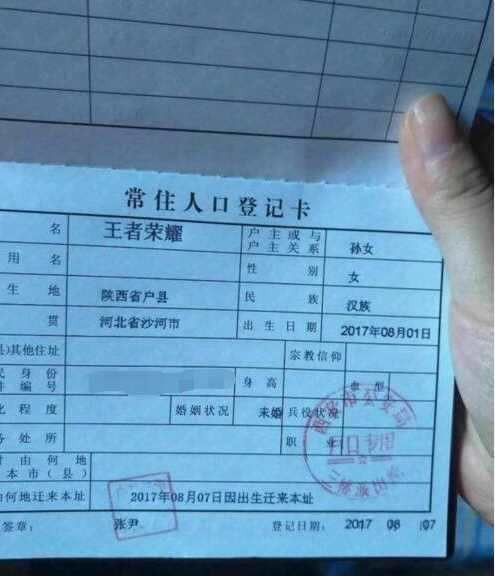 常住人口登记卡
名 王者荣耀 户主或与户主关系 孙女
用名 性别 女
生地 陕西省户县 民族 汉族
贯 河北省沙河市 出生日期 2017年08月01日
县)其他住址 宗教信仰
民身份
件编号 身高 血型
化程度 婚姻状况 未婚 兵役状况
务处所 职业
时由何地
本市(县)
由何地迁来本址 2017年08月07日因出生迁来本址
签章: 张尹 登记日期: 2017 08 07
户口专用